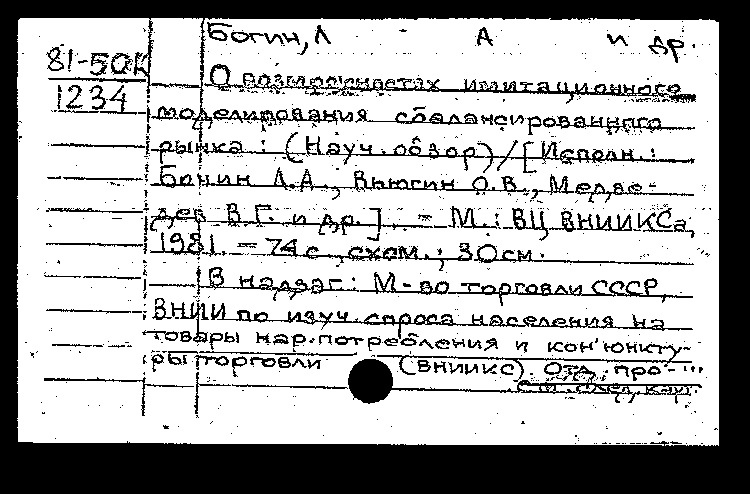 Богин, Л А и др.
81-50К
1234
О возможностях имитационного
моделирования сбалансированного
рынка : (Науч. обзор) / [Исполн.:
Богин Л.А., Вьюгин О.В., Медве-
дев В.Г. и др.]. - М. : ВЦ ВНИИКСа,
1981. - 74 с., схем. ; 30 см.
В надзаг: М-во торговли СССР,
ВНИИ по изуч. спроса населения на
товары нар. потребления и кон'юнкту-
ры торговли (ВНИИКС). Отд. про-...
см. след. карт.